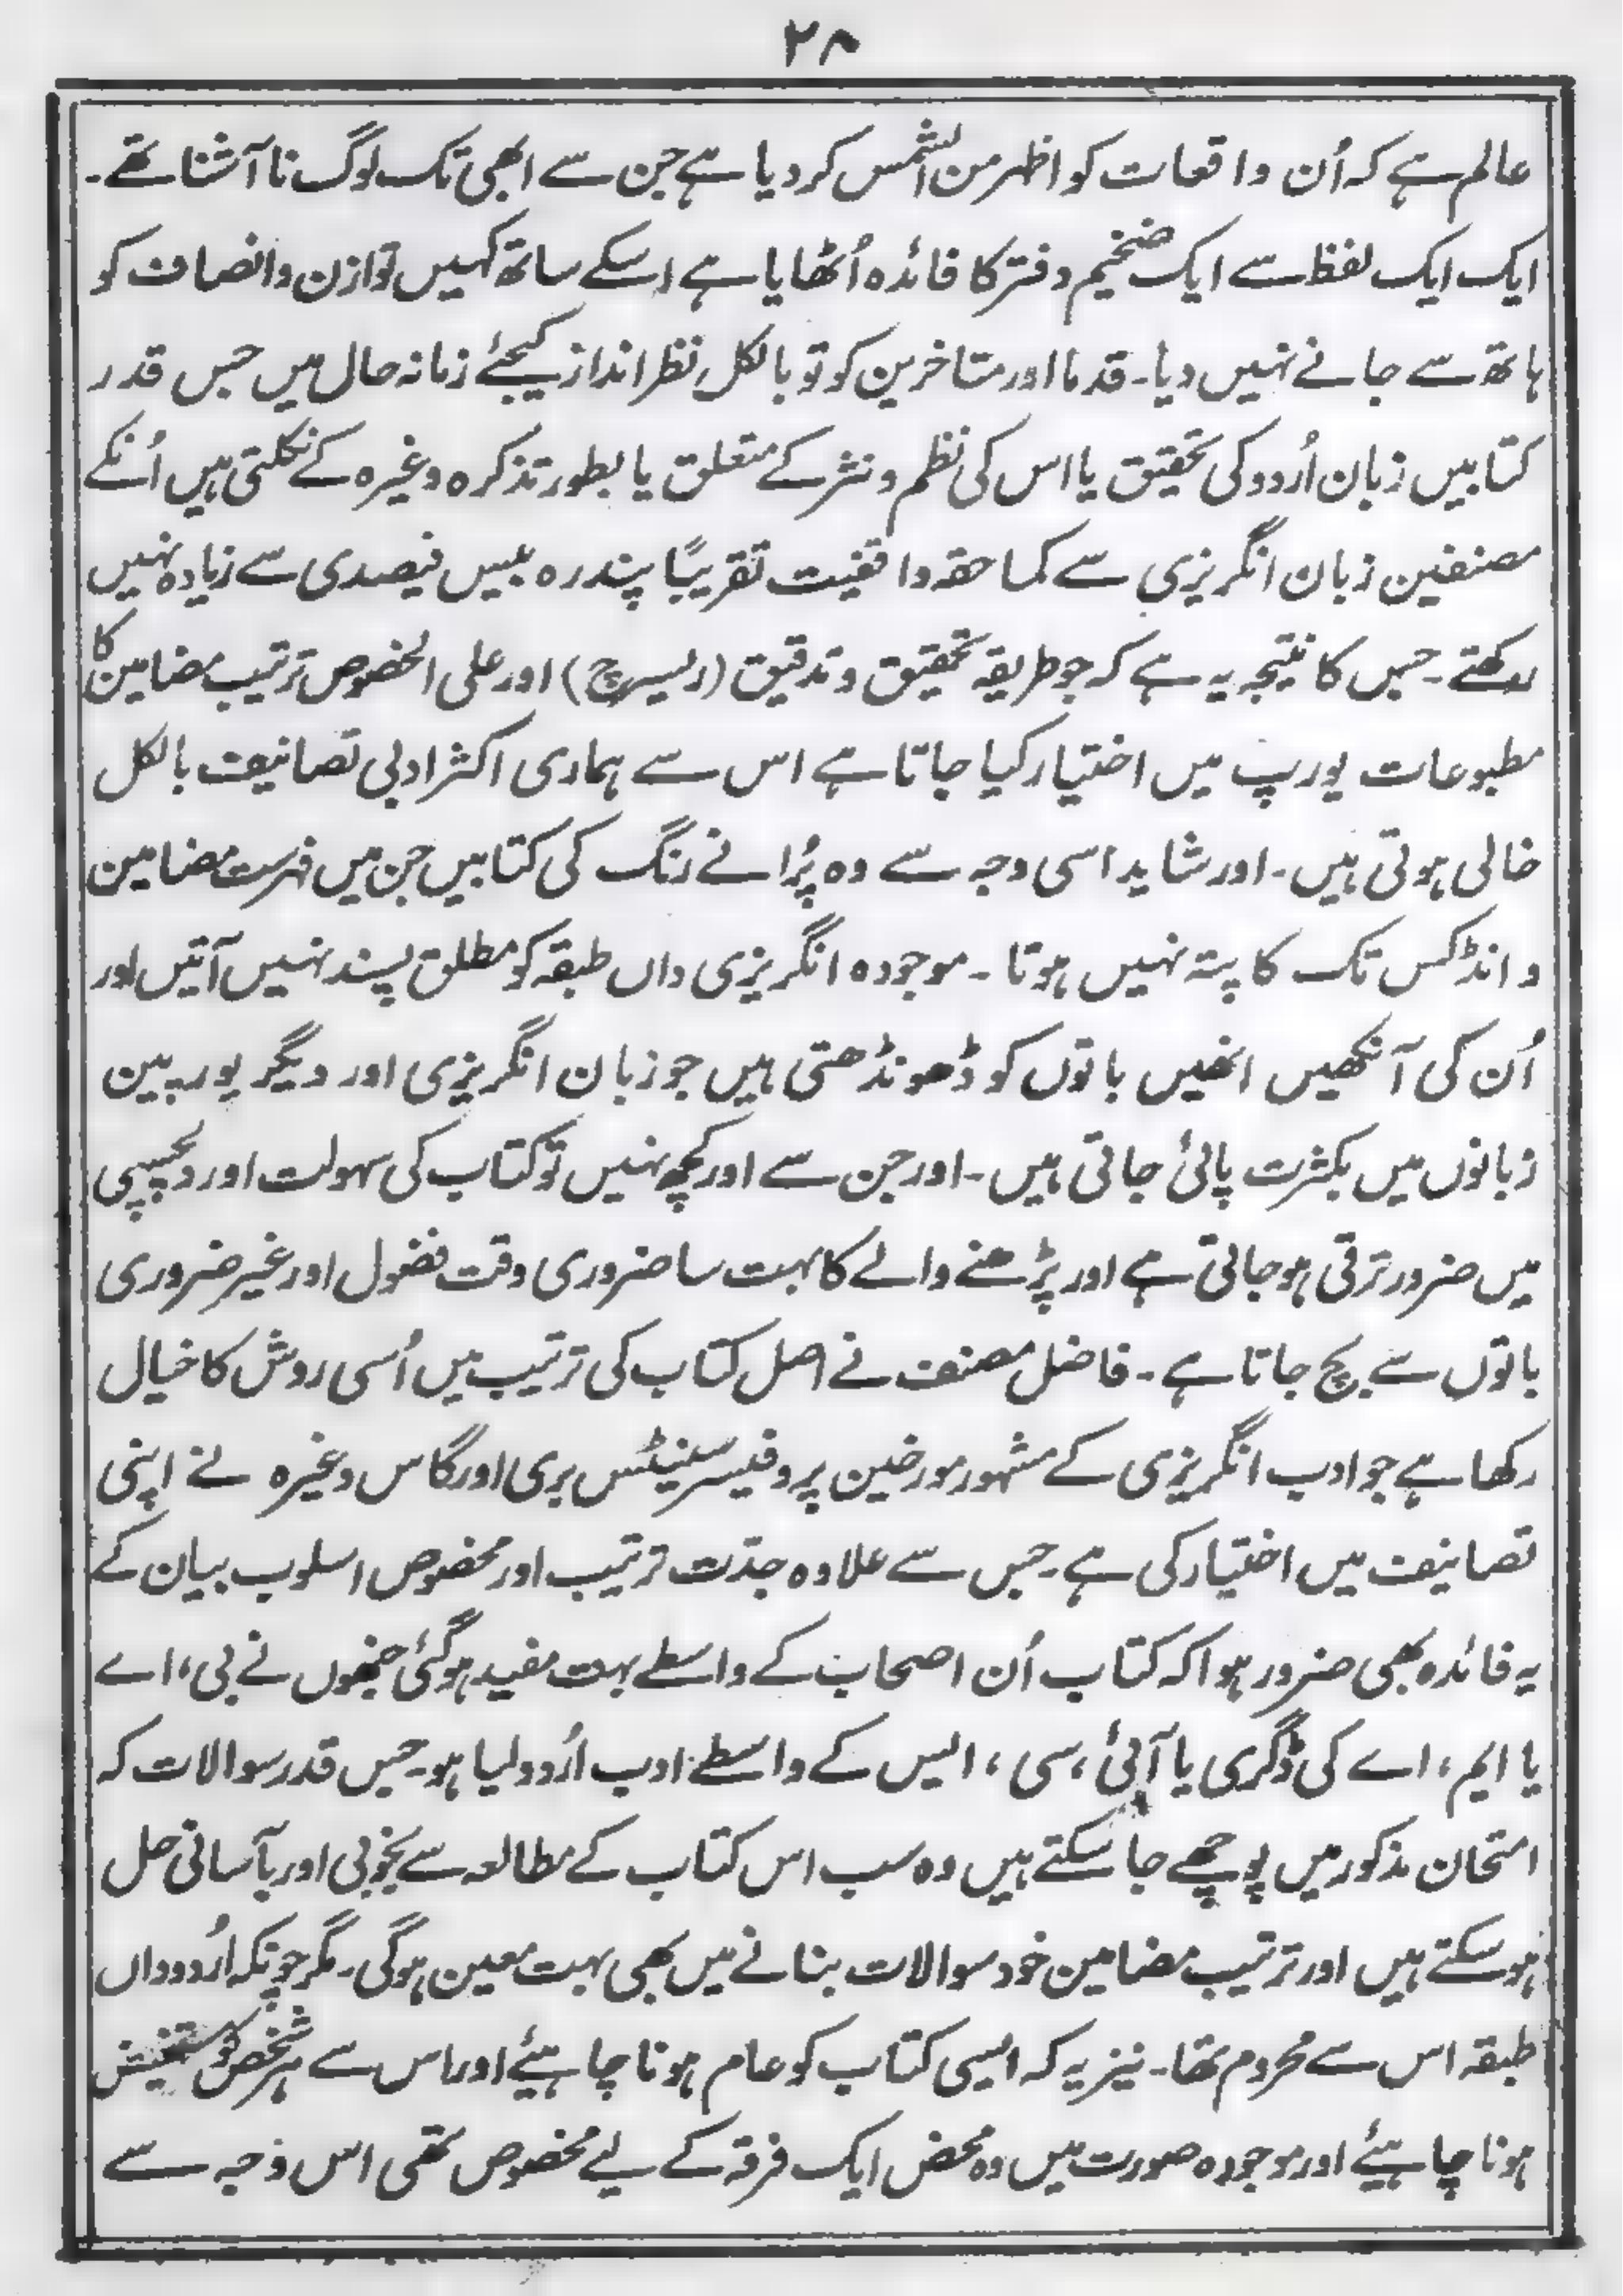 ۲۸
عالم ہے کہ اُن واقعات کو اظہر من الشمس کر دیا ہے جن سے ابھی تک لوگ نا آشنا تھے۔
ایک ایک لفظ سے ایک ضخیم دفتر کا فائدہ اُٹھایا ہے اسکے ساتھ کہیں توازن وانصاف کو
ہاتھ سے جانے نہیں دیا۔ قدما اور متاخرین کو تو بالکل نظر انداز کیجئے زمانہ حال میں جس قدر
کتابیں زبان اُردو کی تحقیق یا اس کی نظم و نثر کے متعلق یا بطور تذکرہ وغیرہ کے نکلتی ہیں اُنکے
مصنفین زبان انگریزی سے کما حقہ واقفیت تقریبًا پندرہ بیس فیصدی سے زیادہ نہیں
رکھتے۔ جس کا نتیجہ یہ ہے کہ جو طریقہ تحقیق و تدقیق (ریسرچ) اور علی الخصوص ترتیب مضامین کا
مطبوعات یورپ میں اختیار کیا جاتا ہے اس سے ہماری اکثر ادبی تصانیف بالکل
خالی ہوتی ہیں۔ اور شاید اسی وجہ سے وہ پُرانے رنگ کی کتابیں جن میں فہرست مضامین
و انڈکس تک کا پتہ نہیں ہوتا ۔ موجودہ انگریزی داں طبقہ کو مطلق پسند نہیں آتیں اور
اُن کی آنکھیں انھیں باتوں کو ڈھونڈھتی ہیں جو زبان انگریزی اور دیگر یورپین
زبانوں میں بکثرت پائی جاتی ہیں۔ اور جن سے اور کچھ نہیں تو کتاب کی سہولت اور دلچسپی
میں ضرور ترقی ہو جاتی ہے اور پڑھنے والے کا بہت سا ضروری وقت فضول اور غیر ضروری
باتوں سے بچ جاتا ہے ۔ فاضل مصنف نے اصل کتاب کی ترتیب میں اُسی روش کا خیال
رکھا ہے جو ادب انگریزی کے مشہور مورخین پروفیسر سینٹس بری اور گاس وغیرہ نے اپنی
تصانیف میں اختیار کی ہے۔ جس سے علاوہ جدّت ترتیب اور مخصوص اسلوب بیان کے
یہ فائدہ بھی ضرور ہوا کہ کتاب اُن اصحاب کے واسطے بہت مفید ہو گئی جنھوں نے بی، اے
یا ایم، اے کی ڈگری یا آئی، سی، ایس کے واسطے ادب اُردو لیا ہو۔ جس قدر سوالات کہ
امتحان مذکور میں پوچھے جا سکتے ہیں وہ سب اس کتاب کے مطالعہ سے بخوبی اور بآسانی حل
ہو سکتے ہیں اور ترتیب مضامین خود سوالات بنانے میں بھی بہت معین ہوگی۔ مگر چونکہ اُردوداں
طبقہ اس سے محروم تھا۔ نیز یہ کہ ایسی کتاب کو عام ہونا چاہیئے اور اس سے ہر شخص کو مستفیض
ہونا چاہیئے اور موجودہ صورت میں وہ محض ایک فرقہ کے لیے مخصوص تھی اس وجہ سے